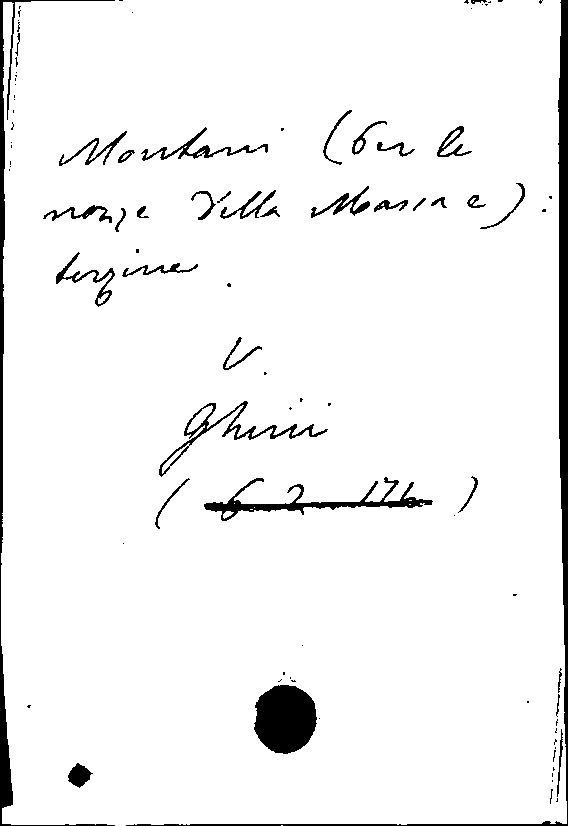 Montani (Per le
nozze Della Massa e) :
terzine .
V.
Ghini
( 6 2 176 )